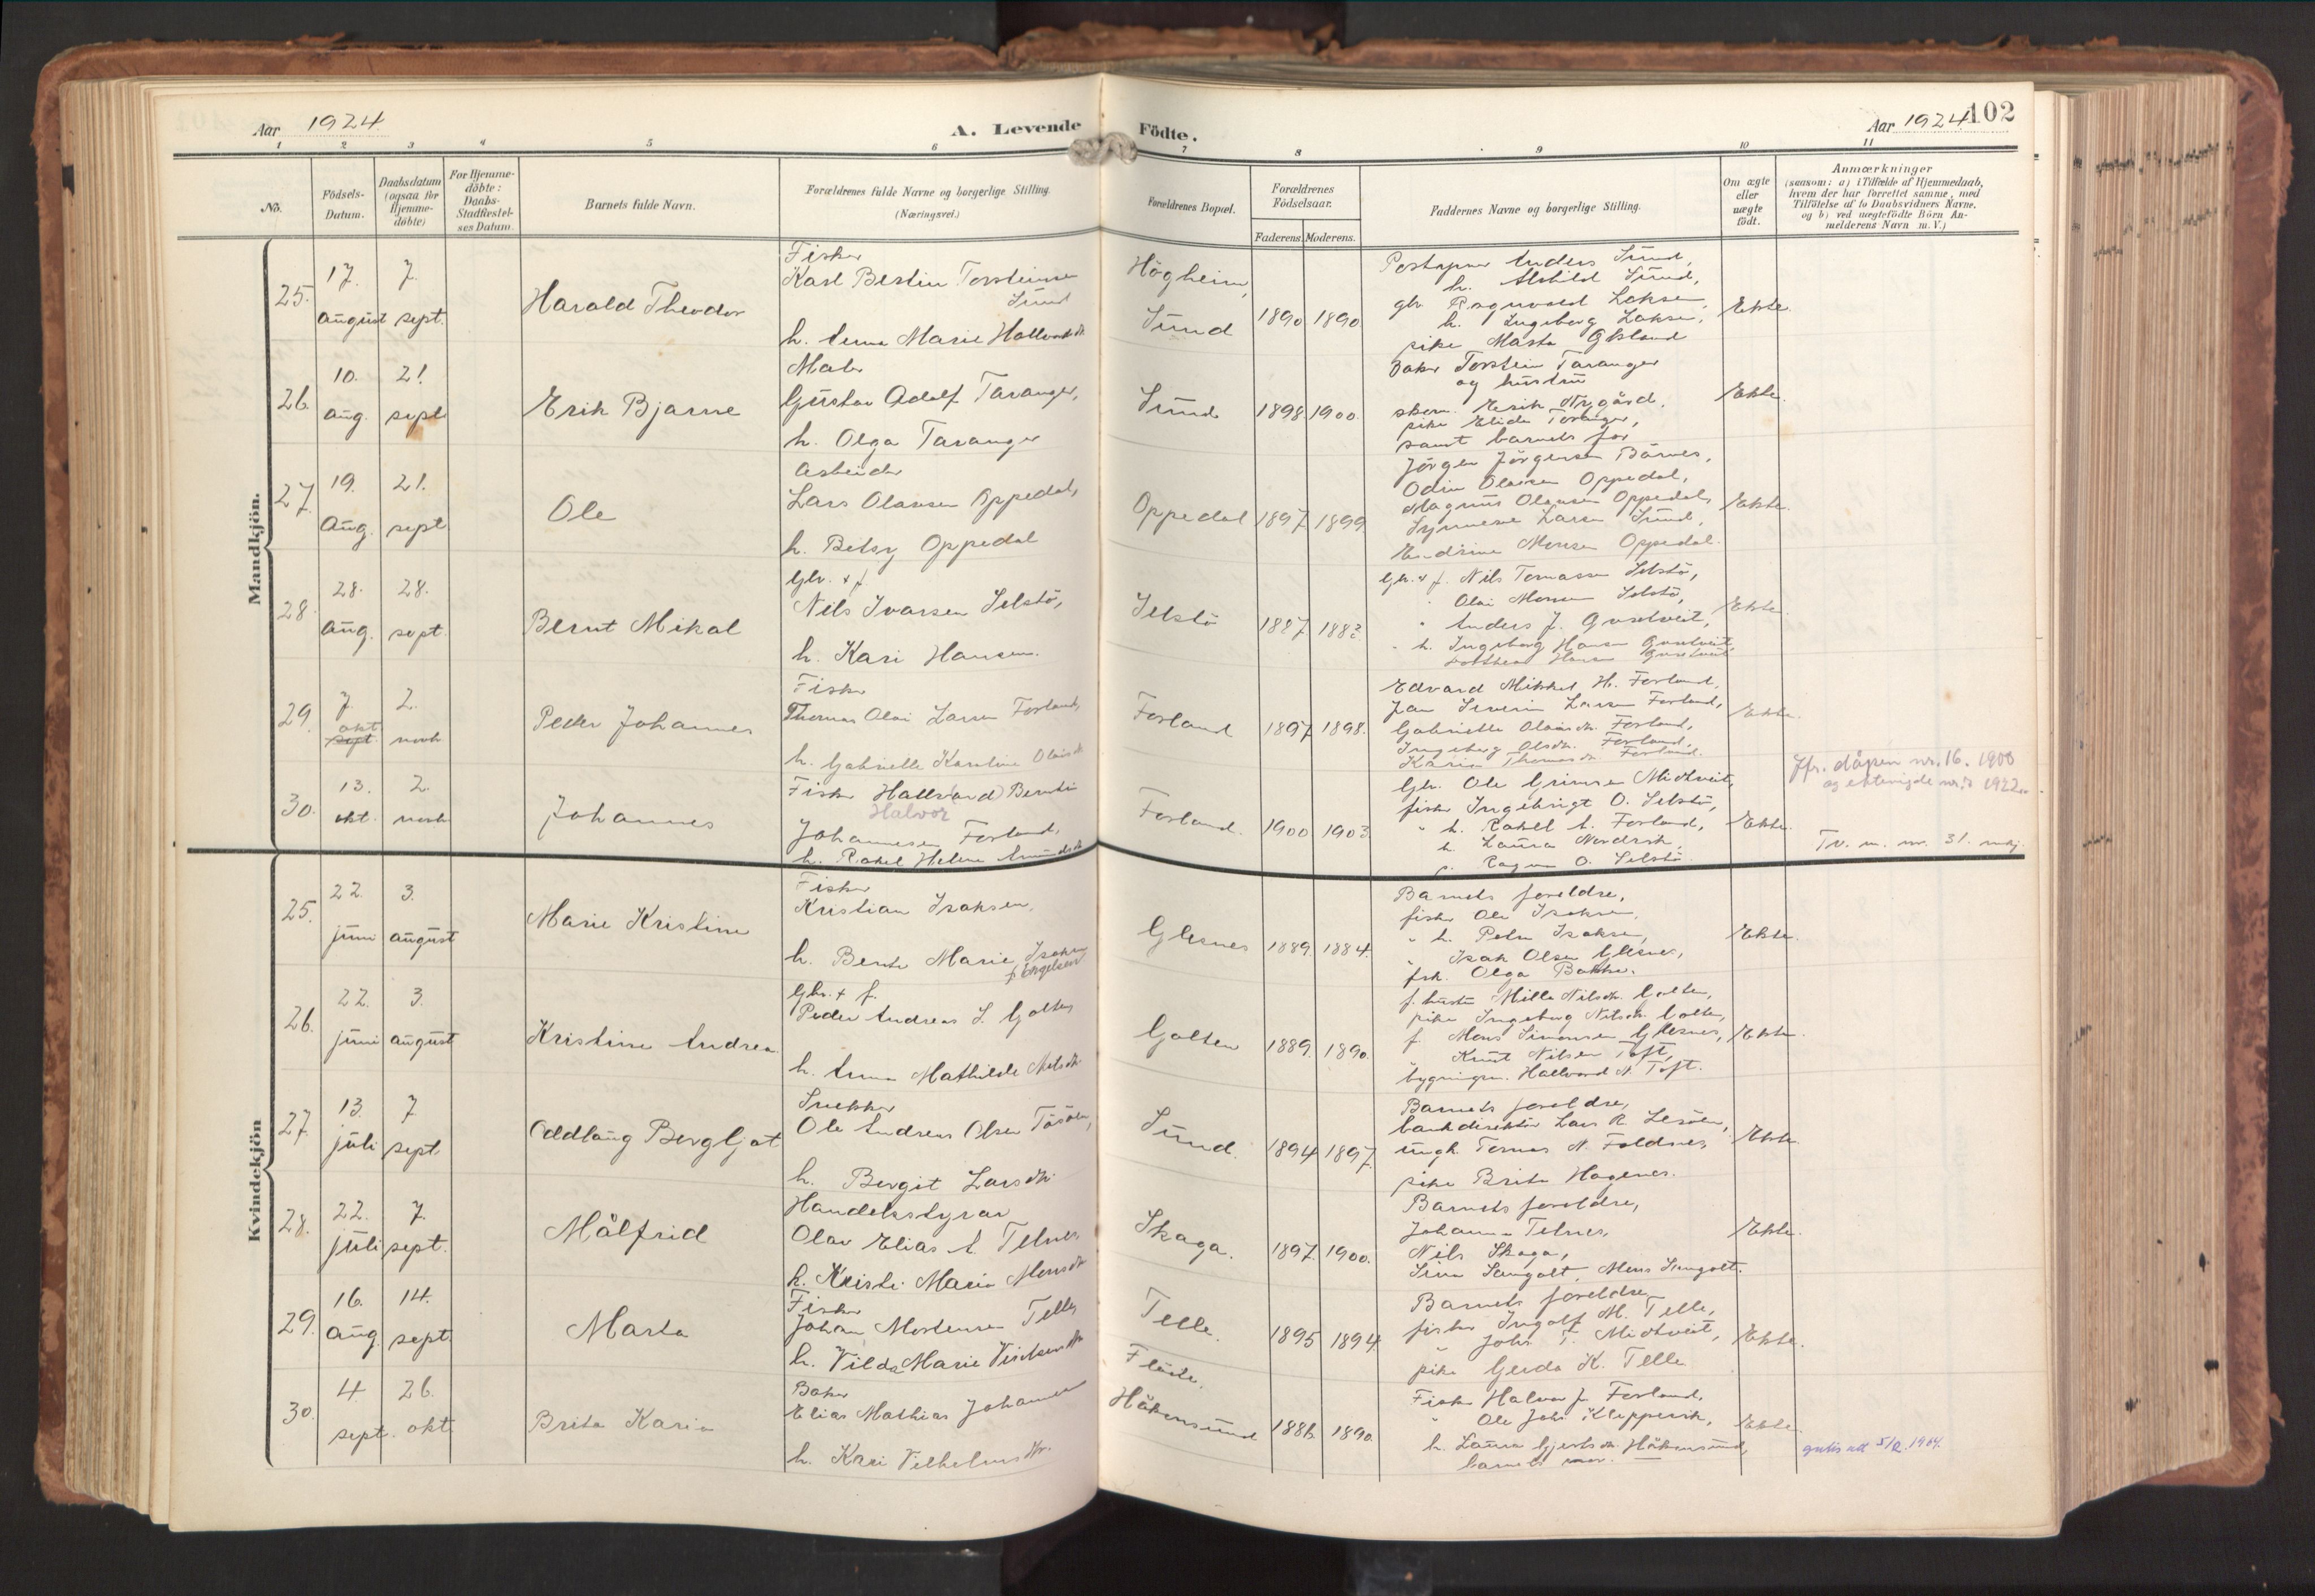 Aar 1924
A. Levende Födte.
Aar 1924
102
1 2 3 4 5 6 7 8 9 10 11
No.
Födsels-Datum.
Daabsdatum (ogsaa for Hjemme-döbte)
For Hjemme-döbte: Daabs-Stadfæstel-ses Datum.
Barnets fulde Navn.
Forældrenes fulde Navne og borgerlige Stilling.
(Næringsvei.)
Forældrenes Bopæl.
Forældrenes Födselsaar.
Faderens. Moderens.
Faddernes Navne og borgerlige Stilling.
Om ægte eller uægte födt.
Anmærkninger
(saasom: a) i Tilfælde af Hjemmedaab, hvem der har forrettet samme, med Tilföielse af to Daabsvidners Navne, og b) ved uægtefödte Börn An-melderens Navn m. V.)
Mandkjön.
25. 17. august 7. sept. Harald Theodor
Fisker
Karl Bertin Torsteinsen
Sund
h. Anna Marie Hallvardsdtr
Högheim,
Sund
1890 1890.
Anders Sund,
h. Sund,
gbr. Ragnvald
h. Ingeborg
pike Marta
Ekte.
26. 10. aug. 21. sept Erik Bjarne
Maler
Gustav Adolf Taranger,
h. Olga Taranger
Sund
1898 1900.
Baker Torstein Taranger
og hustru
Erik Nygård,
pike Elida Taranger,
samt barnets far
Ekte.
27. 19. Aug. 21. sept Ole
Arbeider
Lars Olausen Oppedal,
h. Betsy Oppedal
Oppedal
1897. 1899.
Jörgen Jörgensen
Odin Olausen Oppedal,
Magnus Olausen Oppedal,
Larsen Sund,
Monsen Oppedal.
Ekte.
28. 28. Aug. 28. sept. Bernt Mikal
Gbr. & f.
Nils Ivarsen Selstö,
h. Kari Hansen.
Selstö
1887 1882.
Gbr. & f. Nils Tomassen Selstö,
" Olai Monsen Selstö,
" Anders J.
" h. Ingeborg Hansen
Hansen
Ekte.
29. 7. okt sept. 2. novb. Peder Johannes
Fisker
Thomas Olai Larsen Forland,
h. Gabrielle Karoline Olaisdtr
Forland
1897. 1898.
Edvard Mikkel H. Forland,
Jan Severin Larsen Forland,
Gabrielle Olaisdtr. Forland,
Ingeborg Olsdtr. Forland,
Karia Thomasdtr Forland.
Ekte.
30. 13. okt. 2. novb. Johannes
Fisker Hallv(ard) Berntin
Halvor
Johannesen Forland,
h. Rakel Helene
Forland.
1900 1903.
Gbr. Ole Grimsen Midtveit,
fisker Ingebrigt O. Selstö,
" h. Rakel A. Forland,
h. Laura Nordvik,
p. Ragna O. Selstö.
Ekte.
Jfr. dåpen nr. 16. 1900
og ektevigde nr. 1922
Tv. m. nr. 31.
Kvindekjön
25. 22. juni 3. august Marie Kristine
Fisker
Kristian Isaksen,
h. Berte Marie Isaksen
f. Engelsen
Glesnes
1889. 1884.
Barnets foreldre,
fisker Ole Isaksen,
" h. Petra Isaksen,
" Isak Olsen Glesnes,
frk. Olga Bakke.
Ekte.
26. 22. juni 3. august Kristine Andrea.
Gbr. & f.
Peder Andreas S. Golten
h. Anna Mathilde Nilsdtr
Golten
1889. 1890.
f. hustru Milla Nilsdtr. Golten,
pike Ingeborg Nilsdtr. Golten,
f. Mons Simonsen Glesnes,
" Knut Nilsen Toft,
bygningsm. Hallvard N. Toft.
Ekte.
27. 13. juli 7. sept Oddlaug Bergljot
Snekker
Ole Andreas Olsen
h. Bergit Larsdtr.
Sund.
1894 1897.
Barnets foreldre,
bankdirektör Lars R. Leröen,
ungk. Tomas N. Foldnes,
pike Brita Hagenes.
Ekte.
28. 22. juli 7. sept. Målfrid
Handelsstyrar
Olav Elias A. Telnes
h. Kristi Maria Monsdtr
Skaga.
1897. 1900.
Barnets foreldre,
Johanna Telnes,
Nils Skaga,
Sina Sangolt, Mons Sangolt.
Ekte.
29. 16. aug 14. sept. Marta
Fisker
Johan Mortensen Telle
h. Vilda Marie
Telle.
1895 1894.
Barnets foreldre,
fisker Ingolf M. Telle,
" Johs T. Midtveit,
pike Gerda K. Telle
Ekte.
30. 4. sept. 26. okt. Brita Karia
Baker
Elias Mathias Johannesen
h. Kari Vilhelmsdtr.
Flöite,
Håkonsund
1886. 1890.
Fisker Halvor J. Forland,
" Ole Johs Kleppevik,
h. Laura Gjertsdtr. Håkonsund,
barnets mor.
Ekte.
gratis att 5/2. 1964.